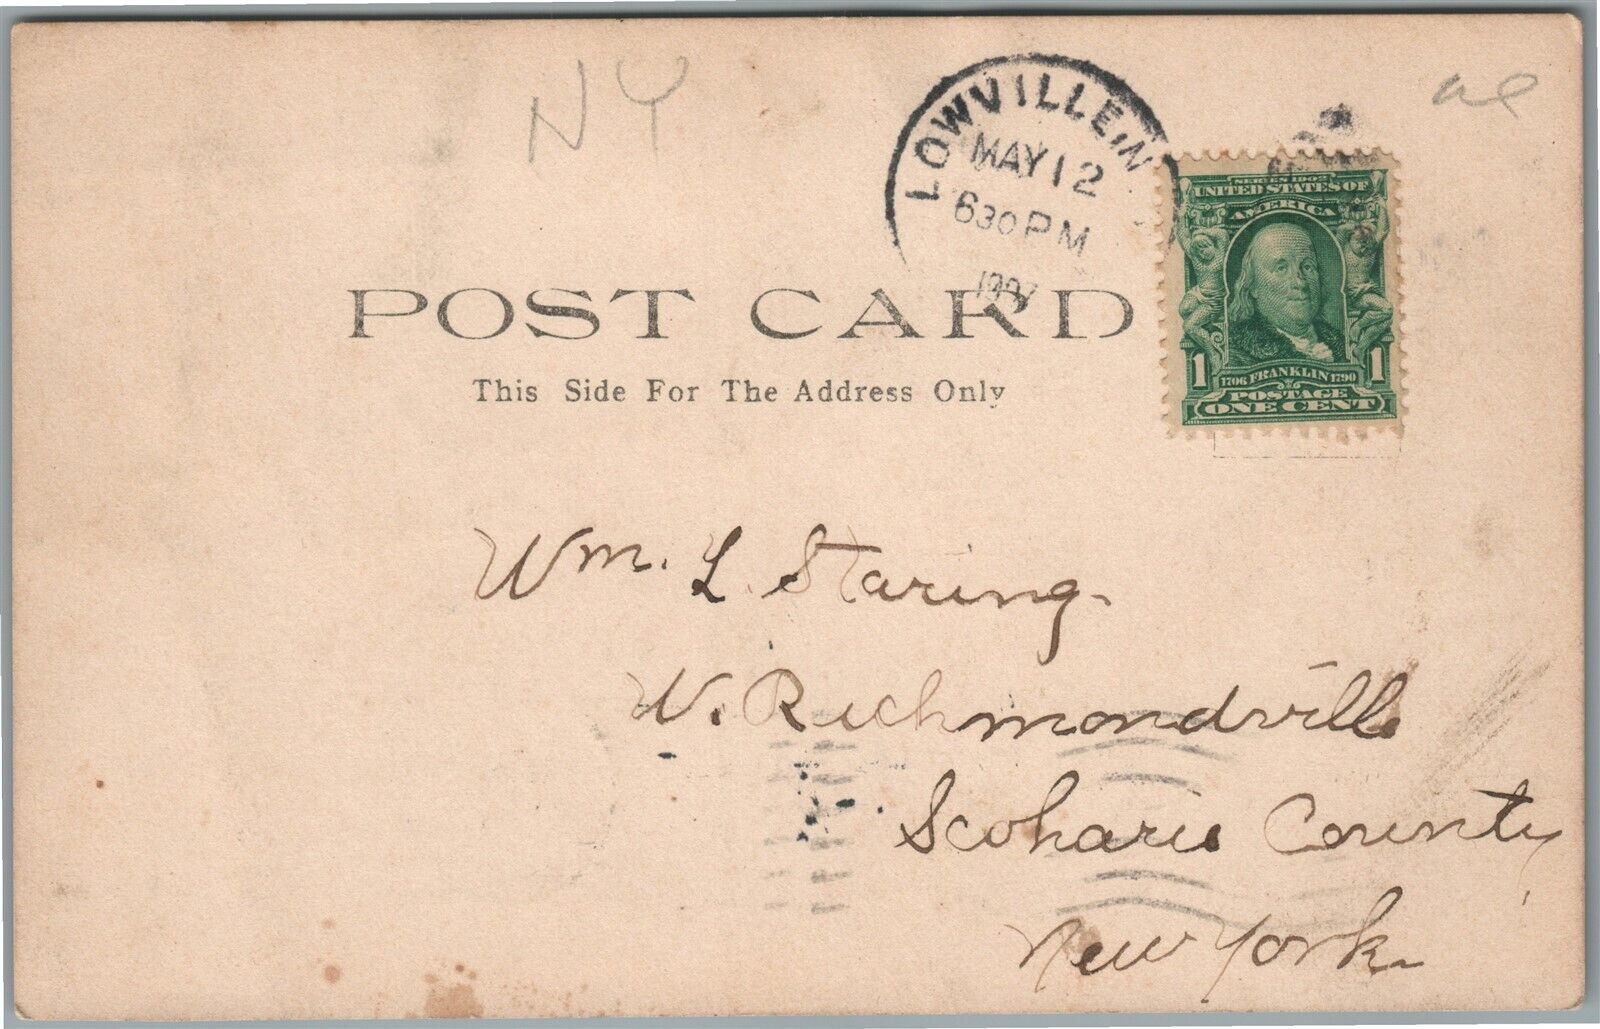 NY
LOWVILLE, N
MAY 12
630 PM
1907
SERIES 1902
UNITED STATES OF
AMERICA
1 1
1706 FRANKLIN 1790
POSTAGE
ONE CENT
POST CARD
This Side For The Address Only
Wm. L. Staring.
W. Richmondville
Scoharie County,
New York